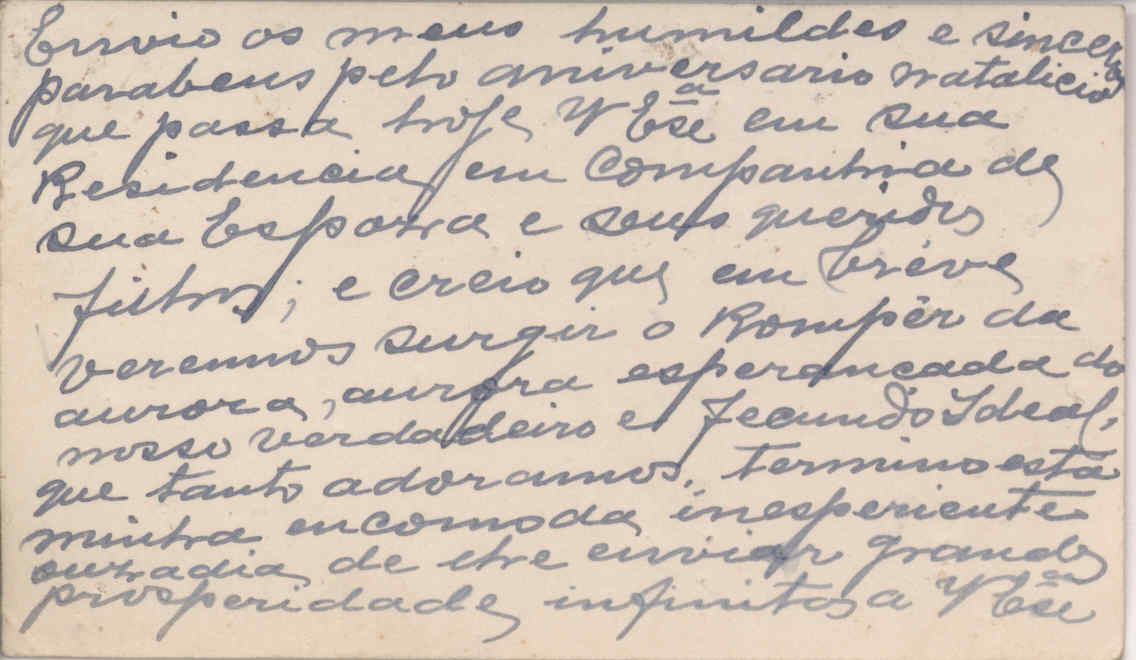 Envio os meus humildes e sinceros
parabens pelo aniversario natalicio
que passa hoje, V Exª em sua
Residencia, em Companhia de
sua Espoza e seus queridos
filhos; e creio que em bréve
veremos surgir o Rompêr da
aurora, aurora esperançada do
nosso verdadeiro e Fecundo Ideal,
que tanto adoramos, termino está
minha encomoda, inesperiente
ouzadia, de lhe enviar grandes
prosperidades infinitas a V Exª